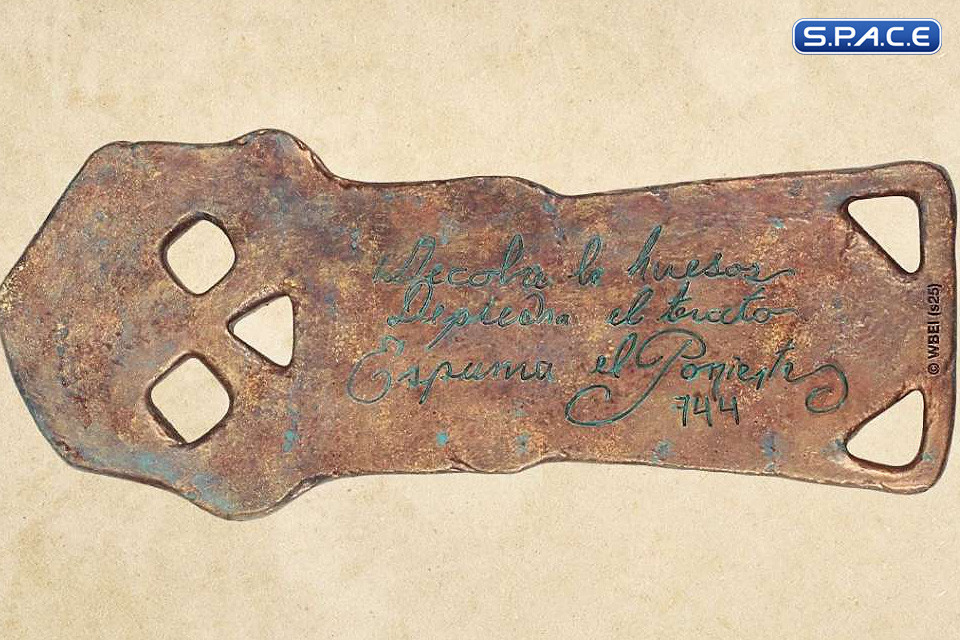 S.P.A.C.E
De cobre los huesos
De piedra el tercero
Espuma el Poniente
744
© WBEI (s25)